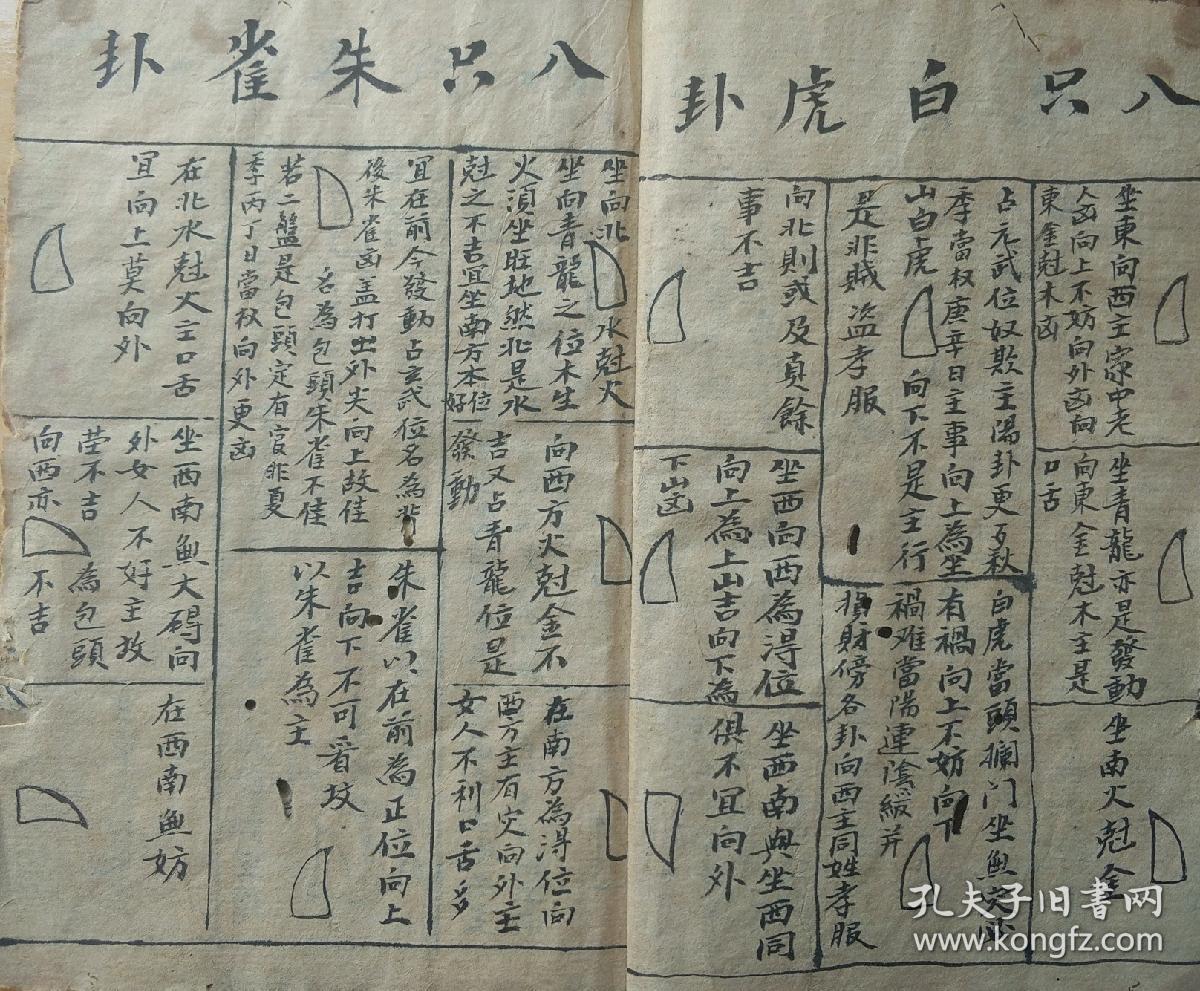 八只白虎卦
坐東向西主家中老
人凶向上不妨向外凶向
東金尅木凶
坐青龍亦是發動
向東金尅木主是
口舌
坐南火尅金
占元武位奴欺主陽卦更
季當权庚辛日主事向上為坐
山白虎 向下不是主行
是非賊盗孝服
白虎當頭攔门坐無
有禍向上不妨向下
禍难當陽連陰緩并
損財傍各卦向西主同姓孝服
向北則或及真餘
事不吉
坐西向西為得位
向上為上山吉向下為
下山凶
坐西南與坐西同
俱不宜向外
八只朱雀卦
坐向北 水尅火
坐向青龍之位木生
火須坐旺地然北是水
尅之不吉宜坐南方本位好
向西方火尅金不
吉又占青龍位是
發動
在南方為得位向
西方主有灾向外主
女人不利口舌多
宜在前今發動占玄武位名為背
後朱雀凶盖打出外尖向上故佳
名為包頭朱雀不佳
若二盤是包頭定有官非夏
季丙丁日當权向外更凶
朱雀以在前為正位向上
吉向下不可看坟
以朱雀為主
在北水尅火主口舌
宜向上莫向外
坐西南無大碍向
外女人不好主放
蕩不吉 為包頭
向西亦 不吉
在西南無妨
孔夫子旧书网
www.kongfz.com